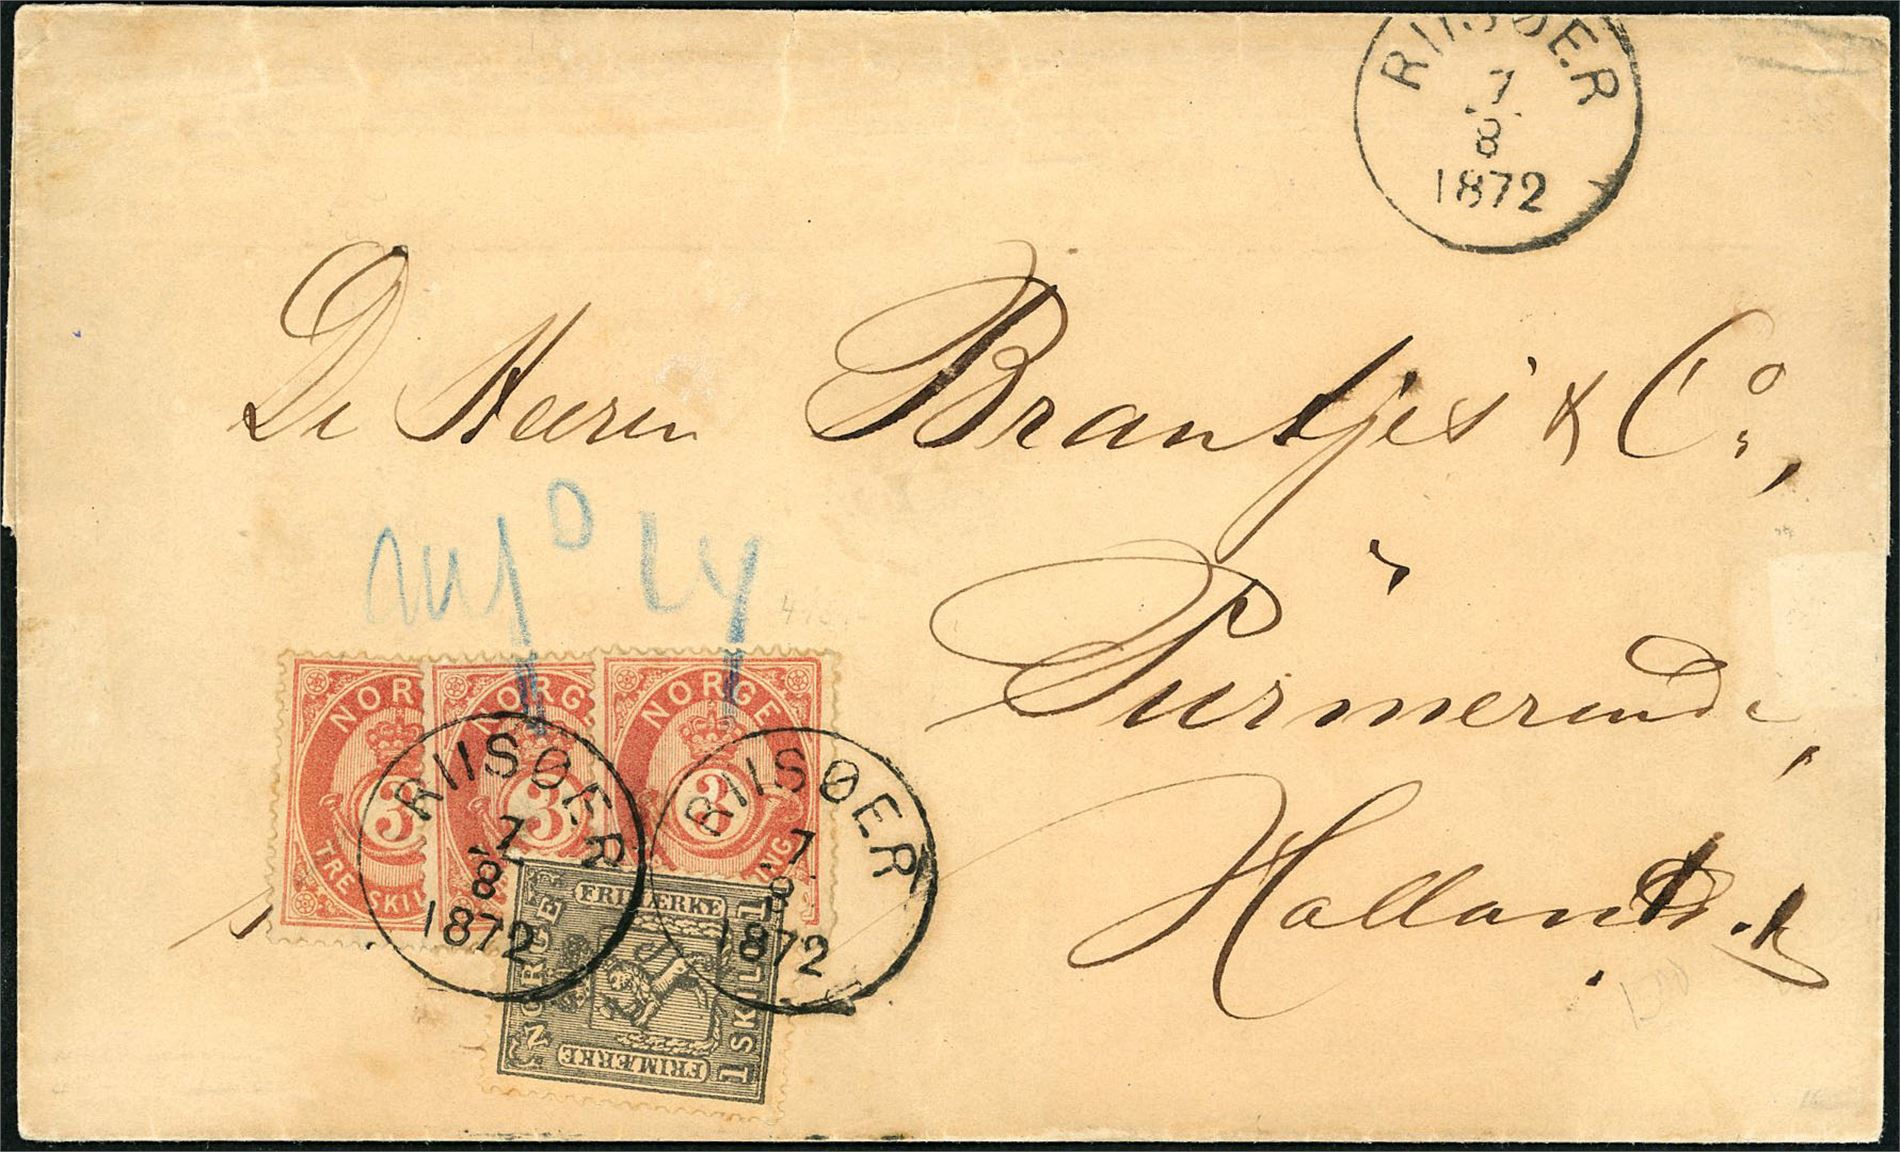 RIISØER
7
8
1872
De Heeren Brantjes & Co.,
Purmerende,
Holland.
NOR
3
TRE SKIL
NORG
3
NORGE
3
ING
RIISØER
7
8
1872
RIISØER
7
8
1872
FRIMÆRKE
NORGE
1 SKILL 1
FRIMÆRKE